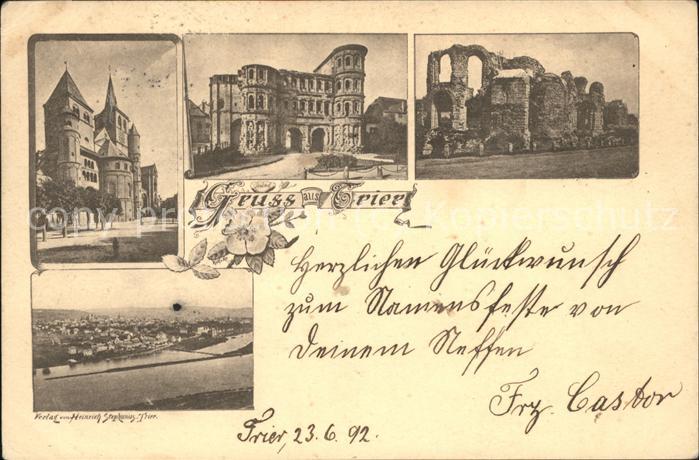 Gruss aus Trier
Herzlichen Glückwunsch
zum Namensfeste von
Deinem Neffen
Frz. Castor
Verlag von Heinrich Stephanus, Trier.
Trier, 23. 6. 92.